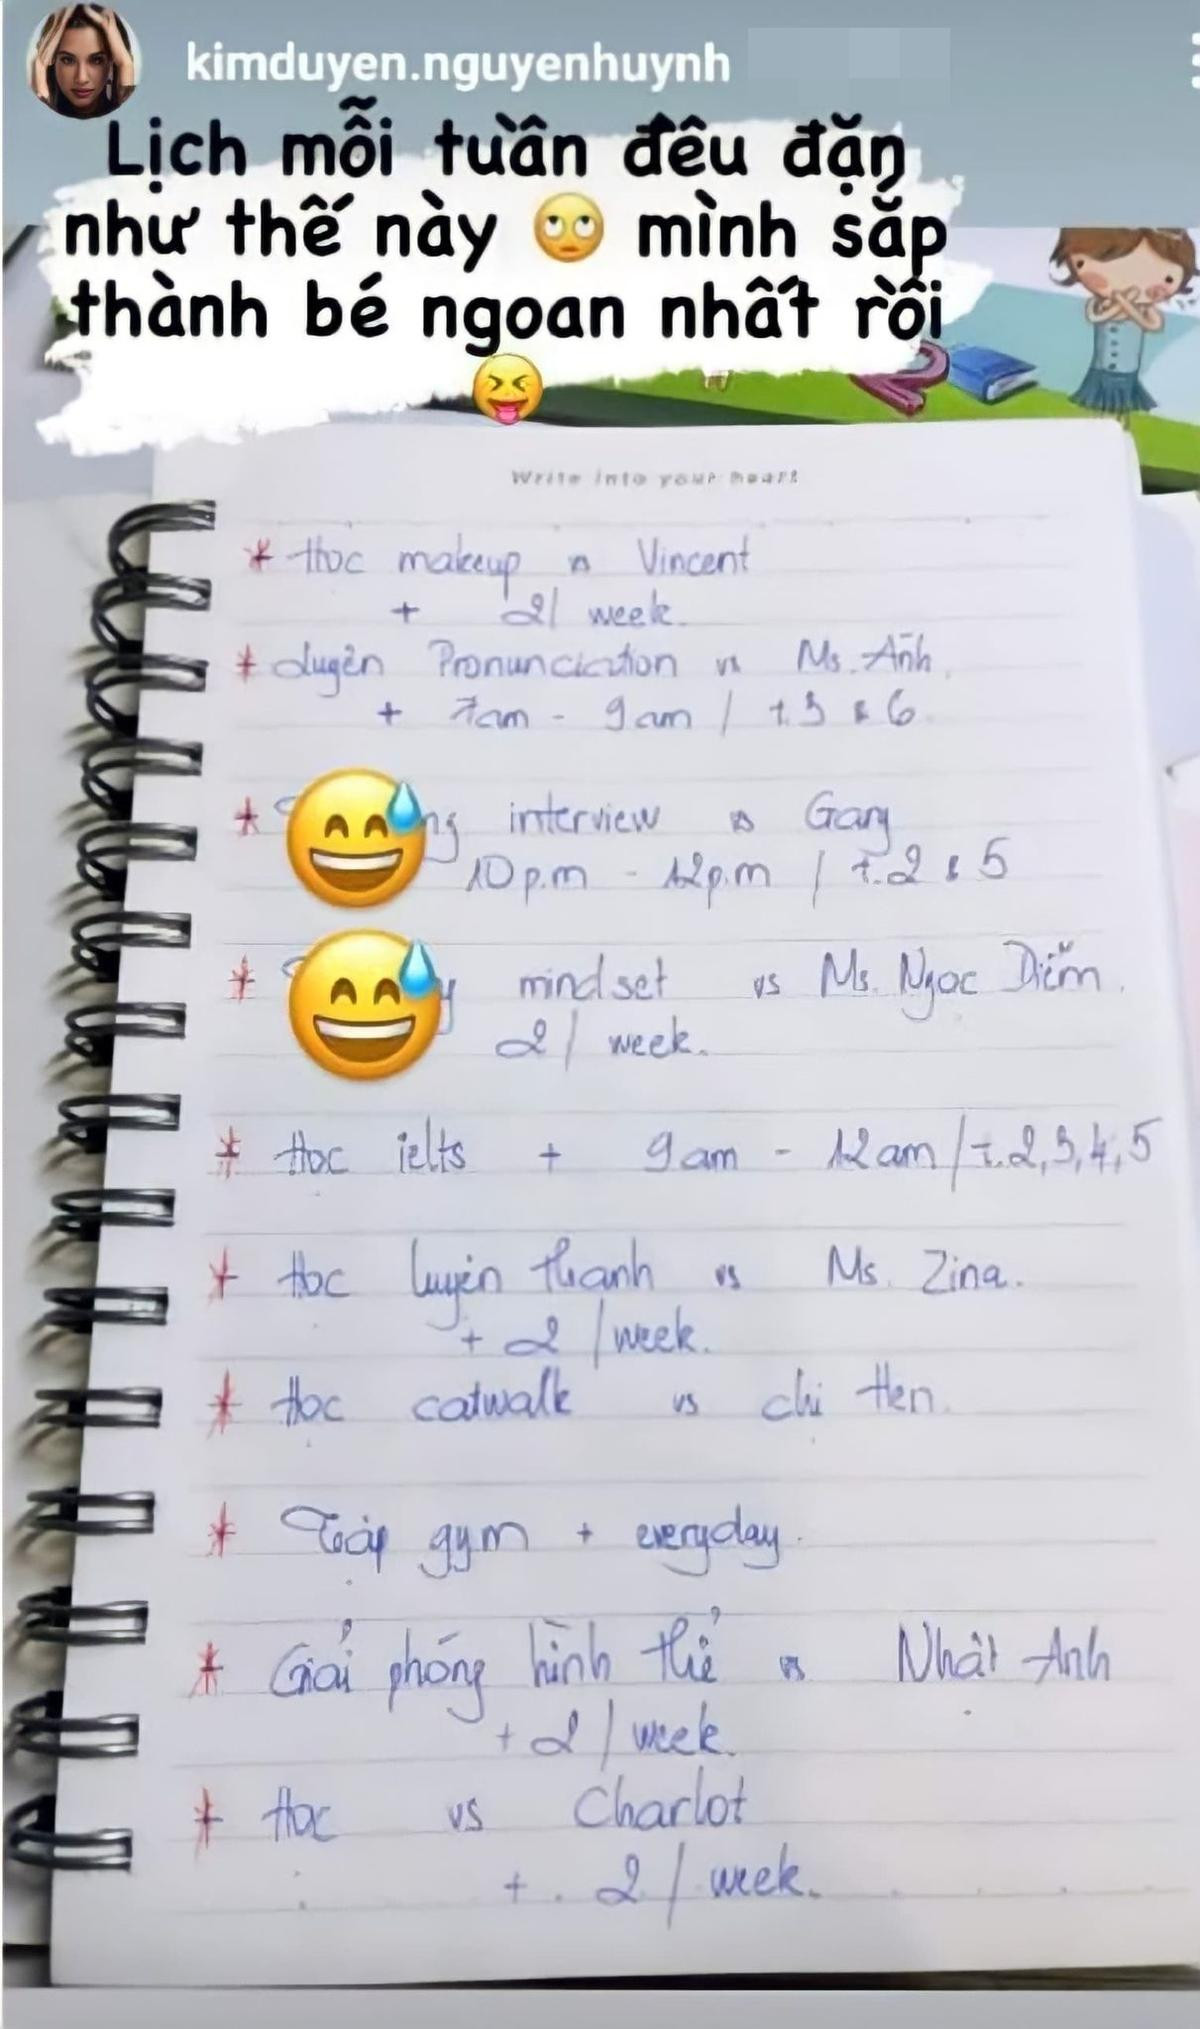 kimduyen.nguyenhuynh
Lịch mỗi tuần đều đặn
như thế này 🙄 mình sắp
thành bé ngoan nhất rồi
😝
Write into your heart
* Học makeup vs Vincent
+ 2/ week.
* Luyện Pronunciation vs Ms. Anh.
+ 7am - 9am / t.3 & 6.
* interview vs Gary
10p.m - 12p.m / t.2 & 5
* mindset vs Ms. Ngọc Diễm.
2/ week.
* Học ielts + 9am - 12am/t.2,3,4,5
* Học luyện thanh vs Ms. Zina.
+ 2 /week.
* Học catwalk vs chị Hen.
* Tập gym + everyday.
* Giải phóng hình thể vs Nhật Anh
+ 2 / week.
* Học vs Charlot
+ 2 / week.